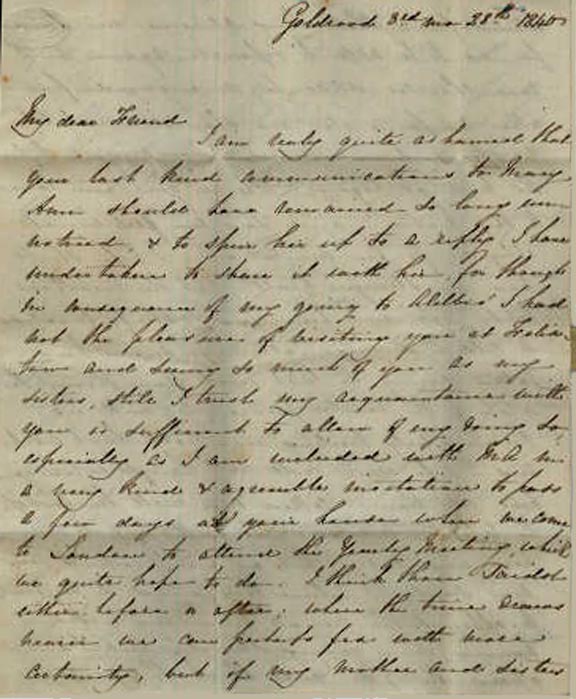 3rd mo 28th 1840
My dear Friend
I am really quite ashamed that
your last kind communications to Mary
Ann should have remained so long un
noticed, & to spur her up to a reply I have
undertaken to share it with her, for though
in consequence of my going to I had
not the pleasure of visiting you at
and seeing so much of you as my
sisters, still I trust my acquaintance with
you is sufficient to allow of my doing so
especially as I am included with MA in
a very kind & agreeable invitation to pass
a few days at your house when we come
to London to attend the Yearly Meeting, which
we quite hope to do. I think thou saidst
either before or after; when the time draws
nearer we can perhaps fix with more
certainty, but if my Mother and sisters